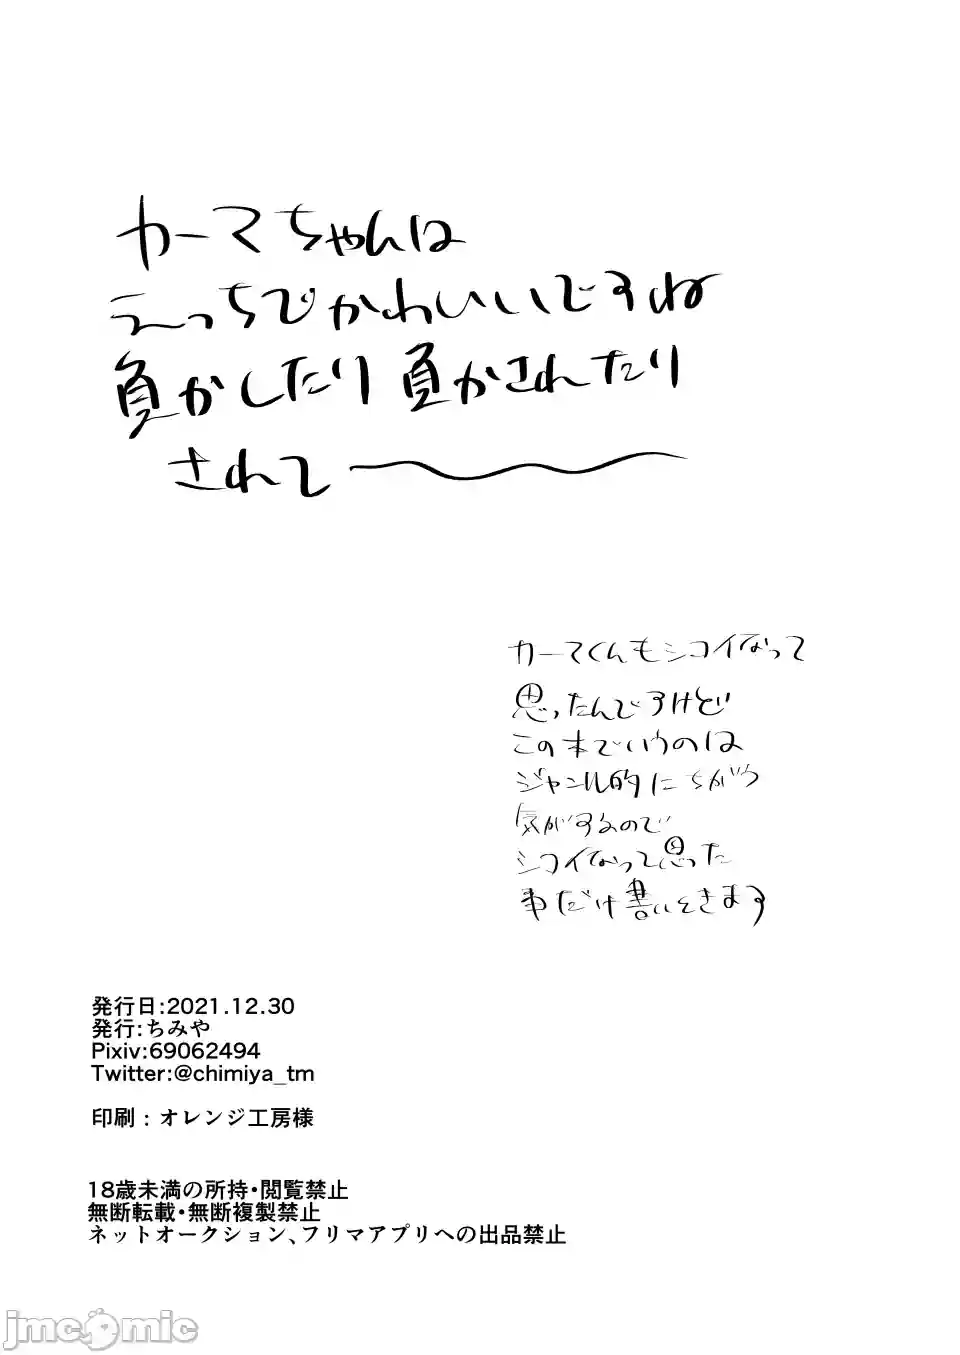 カーマちゃんは
えっちでかわいいですね
負かしたり負かされたり
されて〜
カーマくんもシコイなって
思ったんですけど
この本でいうのは
ジャンル的にちがう
気がするので
シコイなって思った
事だけ書いときます
発行日:2021.12.30
発行:ちみや
Pixiv:69062494
Twitter:@chimiya_tm
印刷：オレンジ工房様
18歳未満の所持・閲覧禁止
無断転載・無断複製禁止
ネットオークション、フリマアプリへの出品禁止
jmcomic